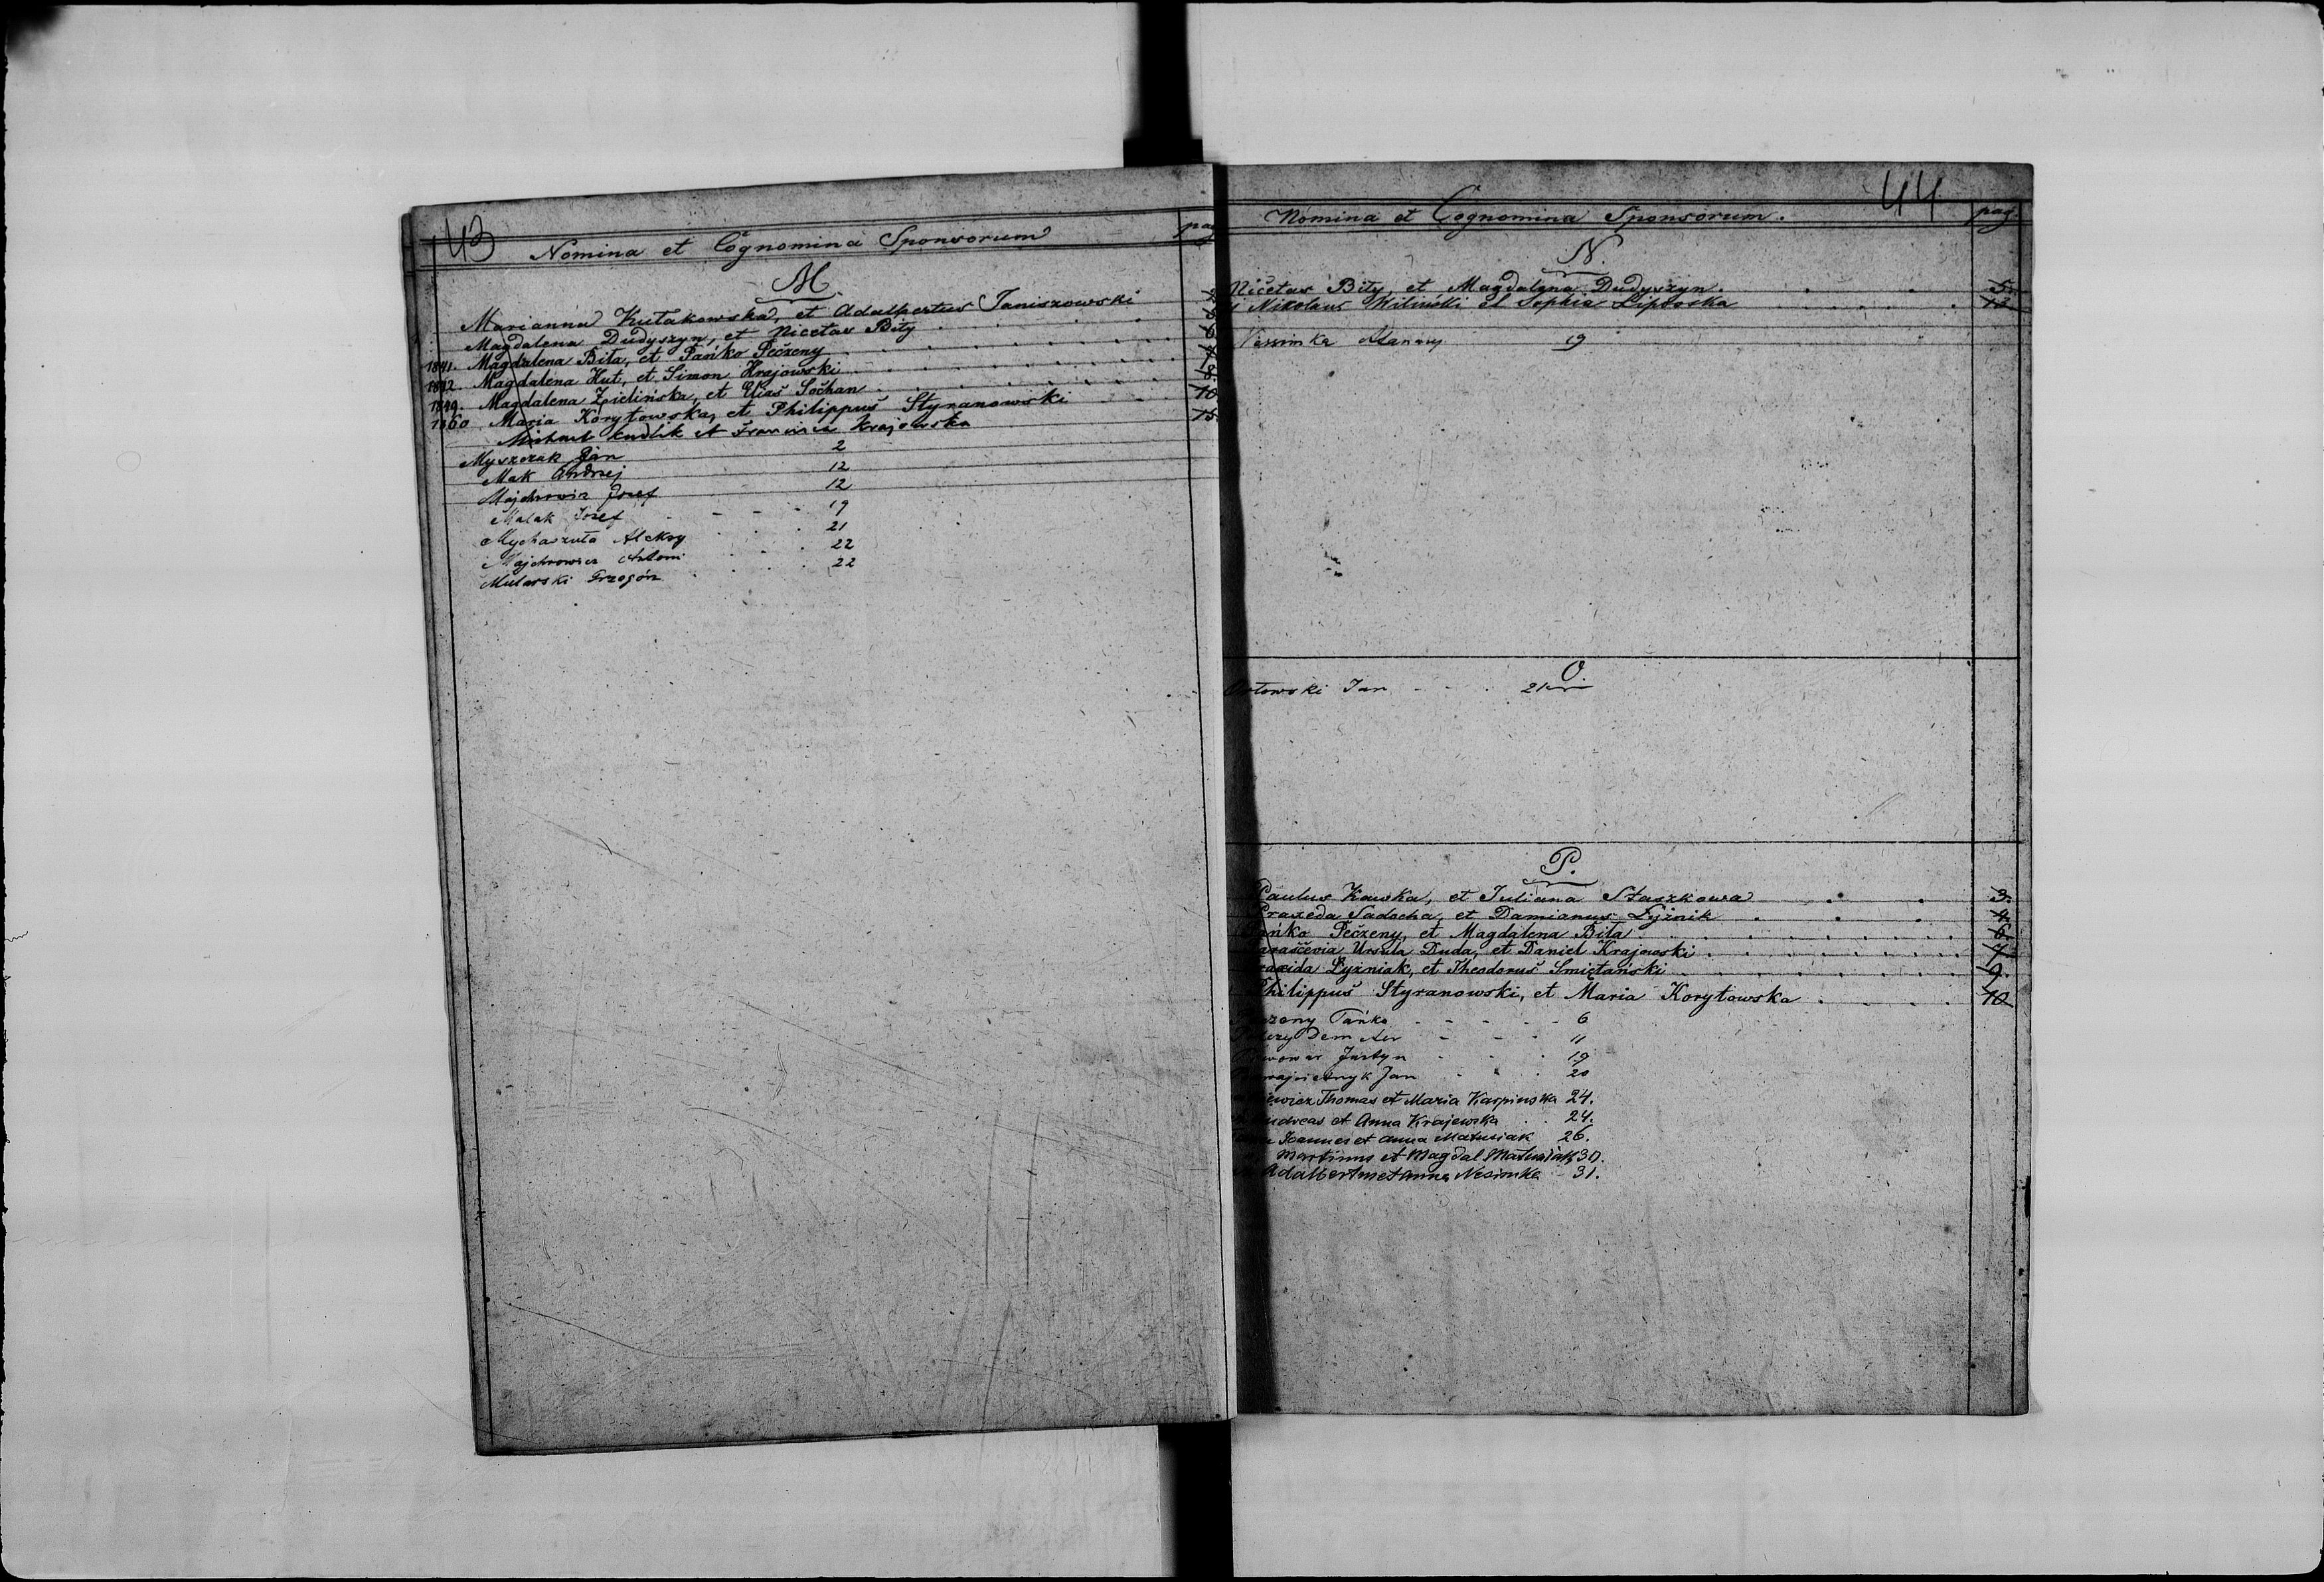 43
Nomina et Cognomina Sponsorum pag
M.
Marianna Kutakowska, et Adalbertus Janiszowski
Magdalena Dudyszyn, et Nicetas Bity
1841. Magdalena Bita, et Pańko Pečzeny
1842. Magdalena Hut, et Simon Krajowski
1849. Magdalena Zielińska, et Elias Sochan
1860 Maria Korytowska, et Philippus Styranowski 10
Michael Kudlik et Francisca Krajowska 15
Myszczak Jan 2
Mak Andrzej 12
Majchrowicz Josef 12
Malak Josef 19
Mychaszuta Aleksy 21
Majchrowicz Antoni 22
Mularski Grzegórz 22
44
Nomina et Cognomina Sponsorum. pag.
N.
Nicetas Bity, et Magdalena Dudyszyn. 5.
Nikolaus Wiliński et Sophia Lipowska 12
Nessimka 19
O.
Jan 21
P.
Paulus Kawka, et Juliana Staszkowa 3.
Praxeda Sadocha, et Damianus Łyżnik 4.
Pańko Pečzeny, et Magdalena Bita 6.
Ursula Duda, et Daniel Krajowski 7
Łyżniak, et Theodorus Smiętański 9.
Philippus Styranowski, et Maria Korytowska 10
Pańko 6
11
Justyn 19
Jan 20
Thomas et Maria Karpinska 24.
Andreas et Anna Krajewska 24.
Joannes et Anna Matusiak 26.
Martinus et Magdal Matusiak 30.
Adalbertus et Anna Nesimka 31.